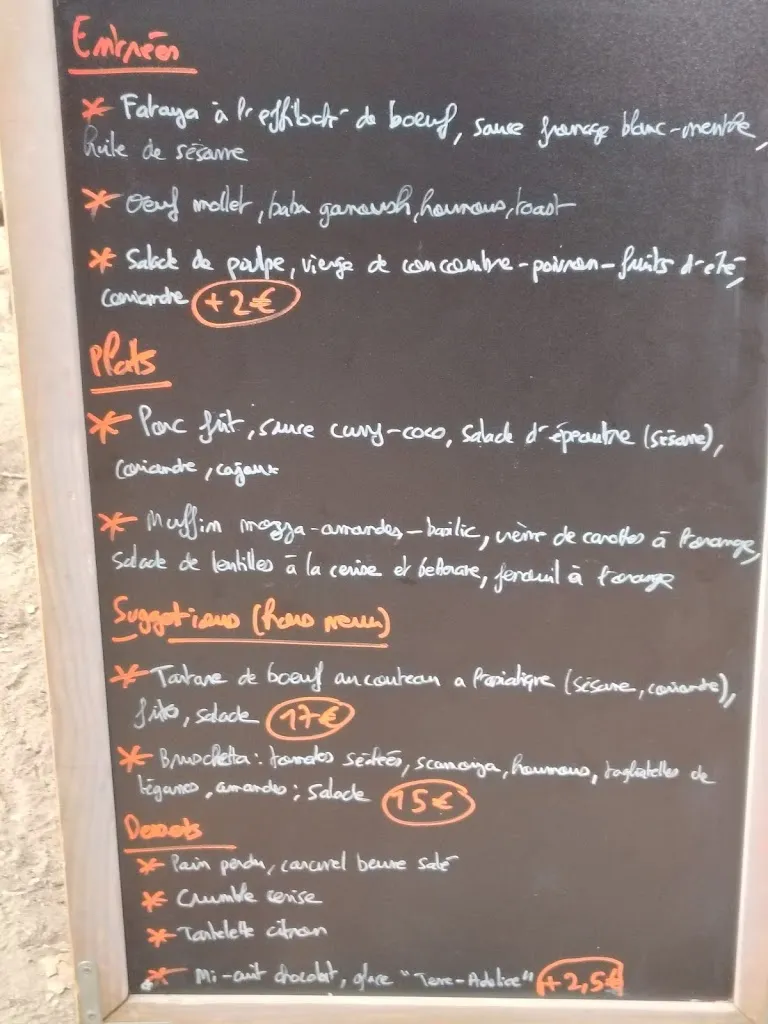 Entrées
* Fataya à l'effiloché de boeuf, sauce fromage blanc-menthe,
huile de sésame
* Oeuf mollet, baba ganoush, houmous, toast
* Salade de poulpe, vierge de concombre-poivron-fruits d'été,
coriandre +2€
Plats
* Porc frit, sauce curry-coco, salade d'épeautre (sésame),
coriandre, cajoux
* Muffin mozza-amandes-basilic, crème de carottes à l'orange,
salade de lentilles à la cerise et betterave, fenouil à l'orange
Suggestions (hors menu)
* Tartare de boeuf au couteau a l'asiatique (sésame, coriandre),
frites, salade 17€
* Bruschetta: tomates séchées, scamorza, houmous, tagliatelles de
légumes, amandes; salade 15€
Desserts
* Pain perdu, caramel beurre salé
* Crumble cerise
* Tartelette citron
* Mi-cuit chocolat, glace "Terre-Adélice" +2,5€